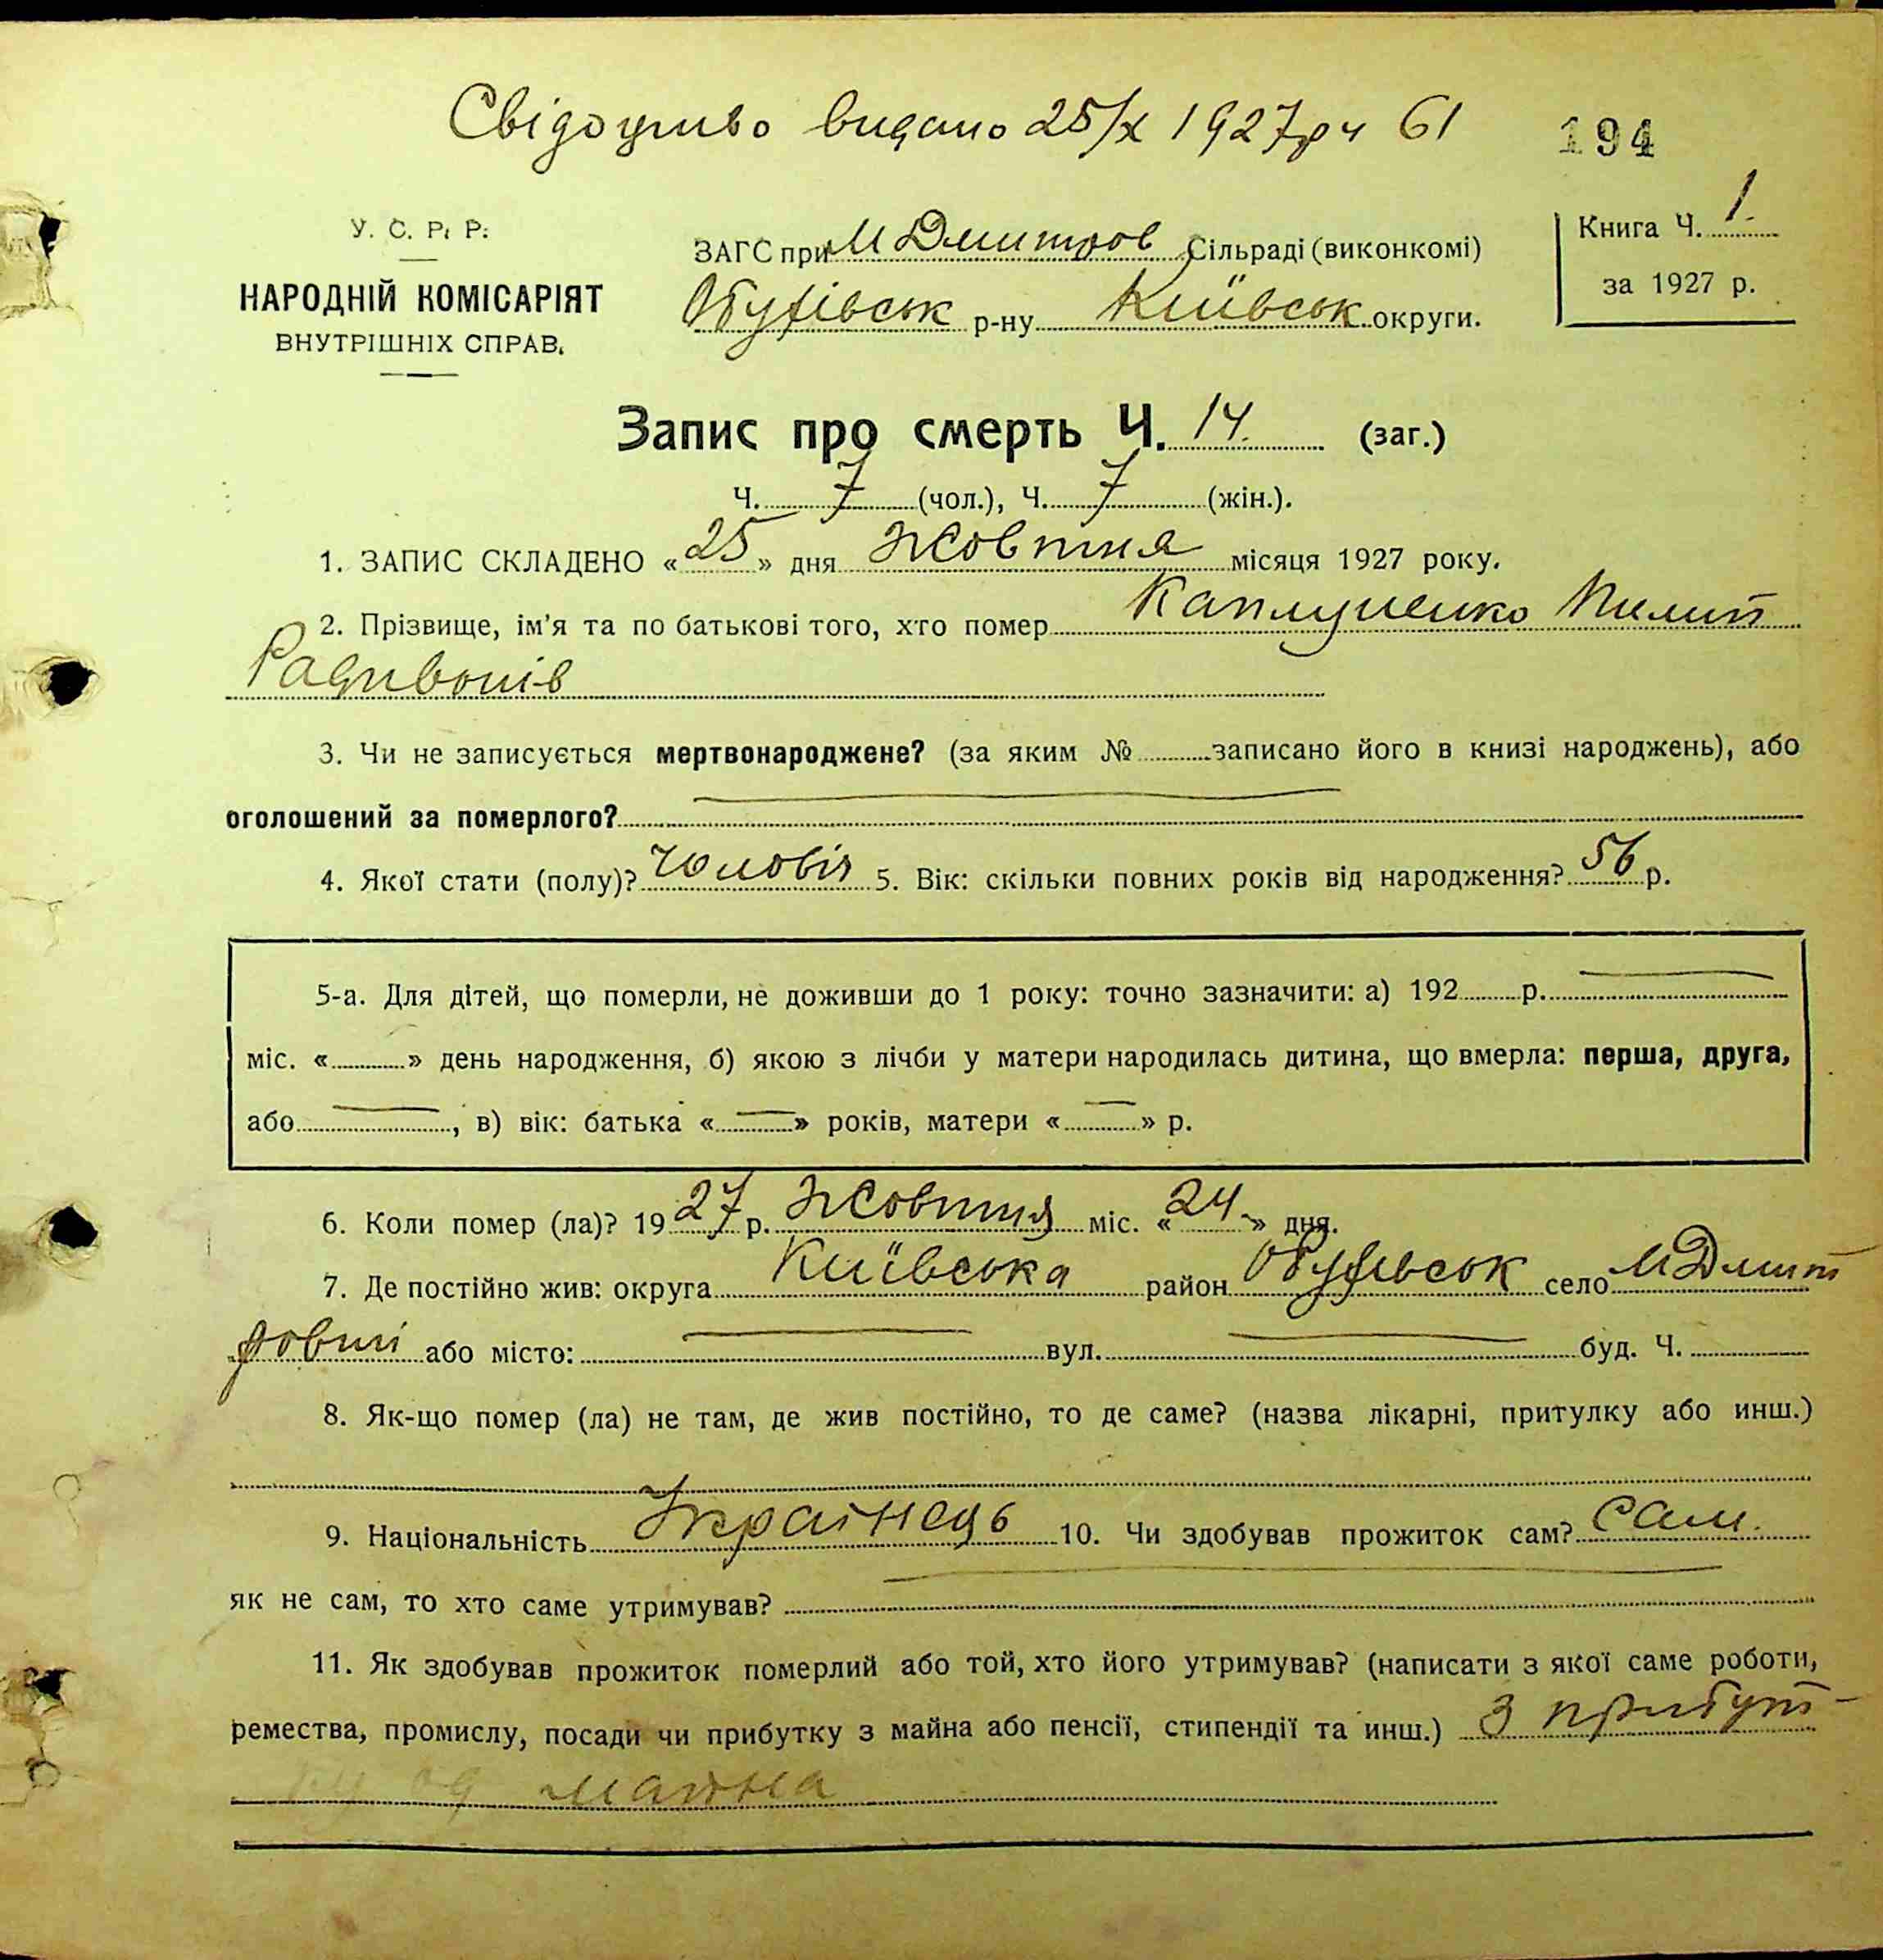 Свідоцтво видано 25/X 1927 р ч 61
194
У. С. Р. Р.
НАРОДНІЙ КОМІСАРІЯТ
ВНУТРІШНІХ СПРАВ.
ЗАГС при М Дмитров Сільраді (виконкомі)
Обухівськ р-ну Київськ округи.
Книга Ч. 1.
за 1927 р.
Запис про смерть Ч. 14. (заг.)
Ч. 7 (чол.), Ч. 7 (жін.).
1. ЗАПИС СКЛАДЕНО «25» дня Жовтня місяця 1927 року.
2. Прізвище, ім'я та по батькові того, хто помер Каплуненко Пилип
Радивонів
3. Чи не записується мертвонароджене? (за яким № записано його в книзі народжень), або
оголошений за померлого?
4. Якої стати (полу)? Чоловіч 5. Вік: скільки повних років від народження? 56 р.
5-а. Для дітей, що померли, не доживши до 1 року: точно зазначити: а) 192 р.
міс. « » день народження, б) якою з лічби у матери народилась дитина, що вмерла: перша, друга,
або , в) вік: батька « » років, матери « » р.
6. Коли помер (ла)? 1927 р. Жовтня міс. «24» дня.
7. Де постійно жив: округа Київська район Обухівськ село М Дмит
ровці або місто: вул. буд. Ч.
8. Як-що помер (ла) не там, де жив постійно, то де саме? (назва лікарні, притулку або инш.)
9. Національність Українець 10. Чи здобував прожиток сам? Сам.
як не сам, то хто саме утримував?
11. Як здобував прожиток померлий або той, хто його утримував? (написати з якої саме роботи,
ремества, промислу, посади чи прибутку з майна або пенсії, стипендії та инш.) З прибут-
ку од майна